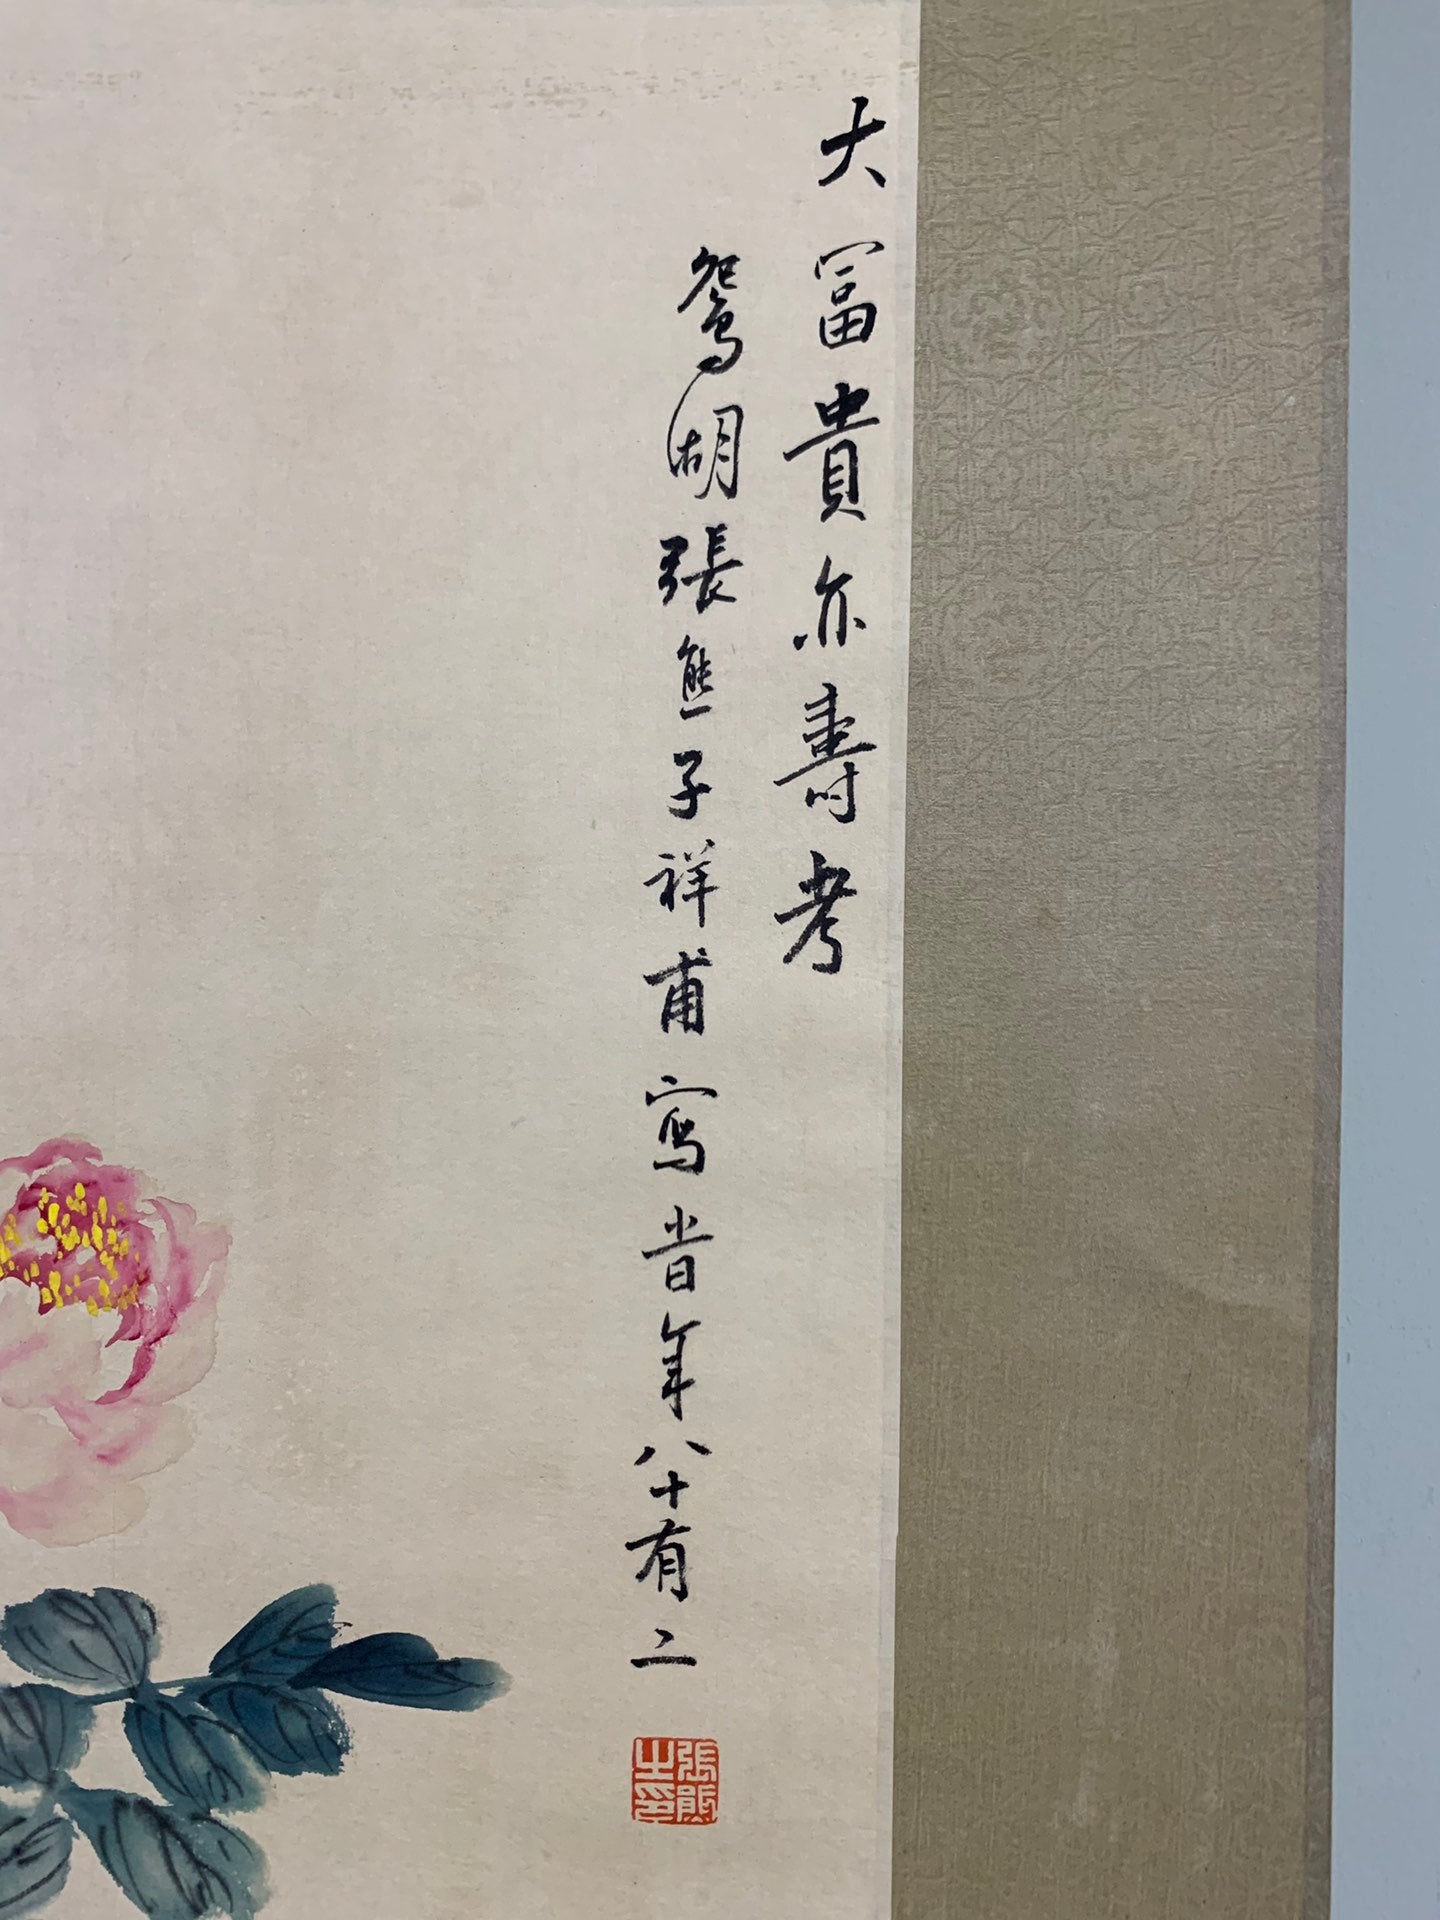 大冨貴亦壽考
鴛湖張熊子祥甫寫旹年八十有二
張熊之印